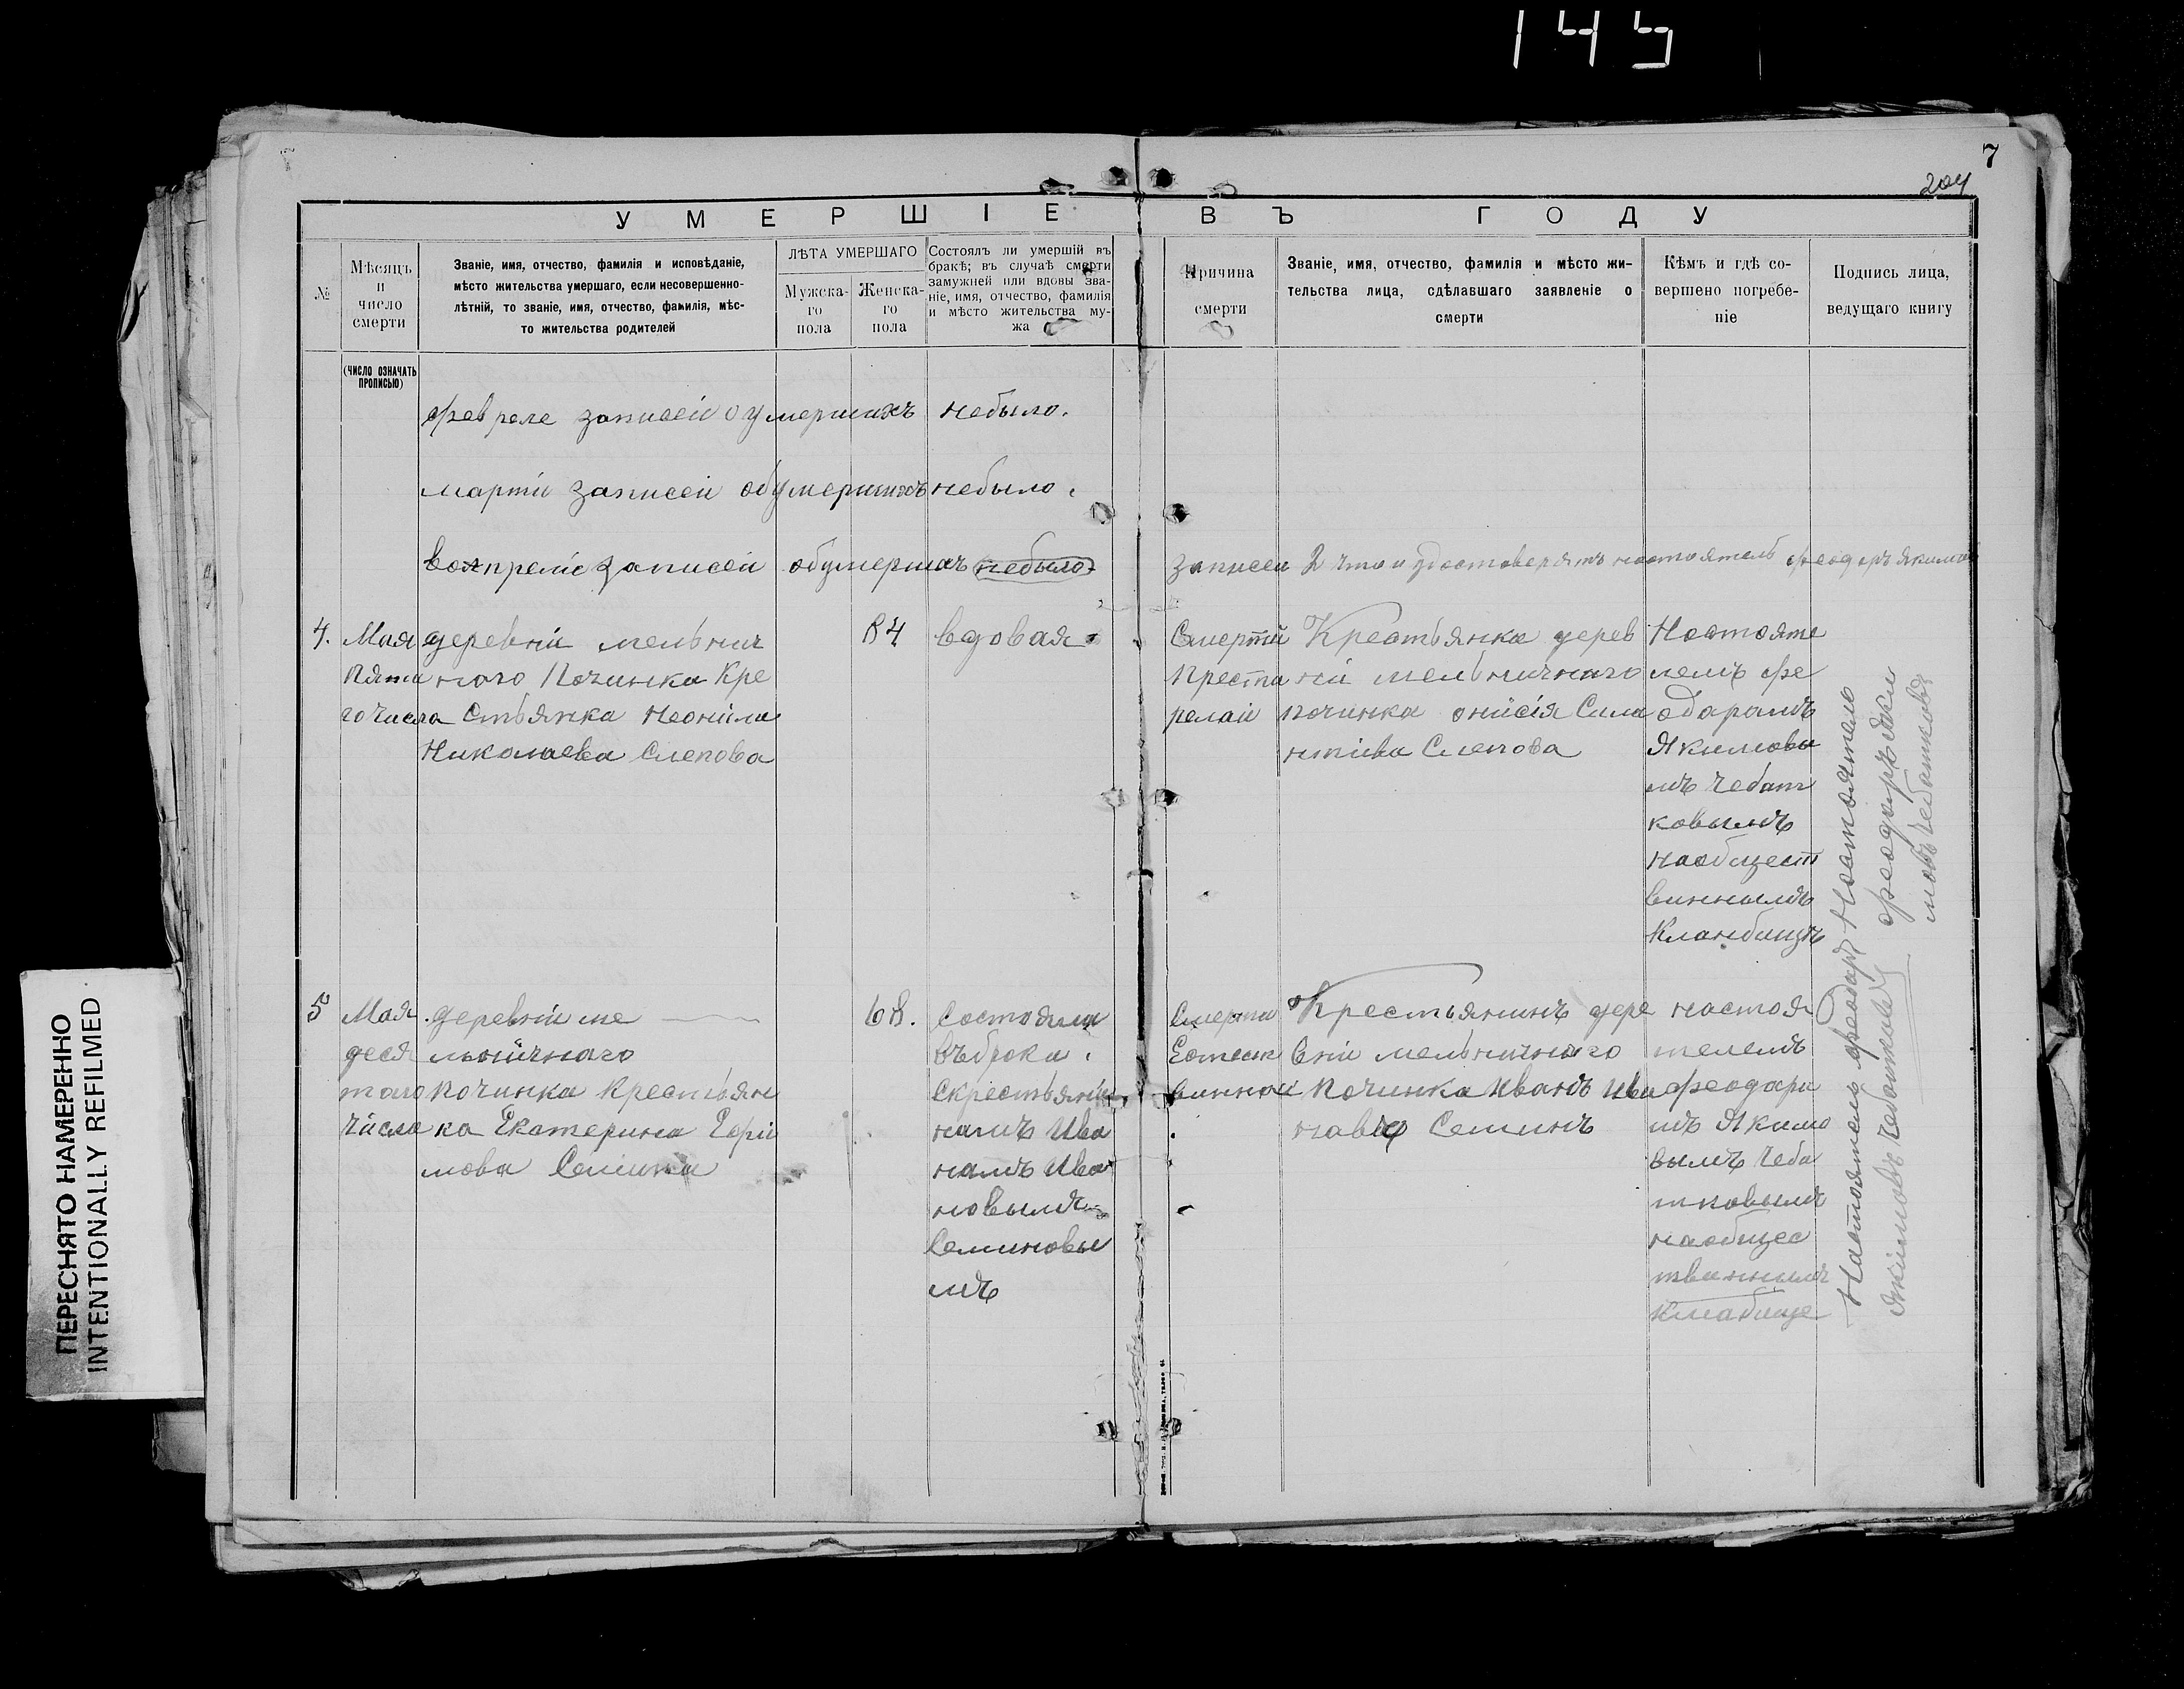 145
7
204
УМЕРШІЕ ВЪ ГОДУ
№
Мѣсяцъ
и
число
смерти
Званіе, имя, отчество, фамилія и исповѣданіе,
мѣсто жительства умершаго, если несовершенно-
лѣтній, то званіе, имя, отчество, фамилія, мѣс-
то жительства родителей
ЛѢТА УМЕРШАГО
Мужска-
го
пола
Женска-
го
пола
Состоялъ ли умершій въ
бракѣ; въ случаѣ смерти
замужней или вдовы зва-
ніе, имя, отчество, фамилія
и мѣсто жительства му-
жа
Причина
смерти
Званіе, имя, отчество, фамилія и мѣсто жи-
тельства лица, сдѣлавшаго заявленіе о
смерти
Кѣмъ и гдѣ со-
вершено погребе-
ніе
Подпись лица,
ведущаго книгу
(ЧИСЛО ОЗНАЧАТЬ
ПРОПИСЬЮ)
феврале записей о умершихъ небыло.
марти записеи обумершихъ небыло.
вопрелiе записеи обумершхъ небыло
записеи 2 что и удостоверятъ настоятель феодоръ Якимов
4.
Мая
пята
гочисла
деревни мельнич
наго Починка Кре
стьянка Неонила
Николаева Слепова
84
вдовая
Смертй
Преста
релаи
Крестьянка дерев
ни мельничнаго
починка онисiя Сила
нтiева Слепова
Настояте
лемъ фе
одарамъ
Якимовы
мъ Чебат
ковымъ
наобщест
виннымъ
Кландбищъ
Настоятель
феодоръ Яки
мовъ Чебатковъ
5
Мая
деся
таго
Числа
деревнiи ме
льничнаго
починка Крестьян
ка Екатерина Ефи
мова Семина
68.
Состояла
въброки
Скрестьянi
намъ Ива
намъ Ива
новымъ
Семиновы
мъ
Смерти
Естеск
винной
Крестьянинъ дере
внiи мельничнаго
Починка Иванъ Ива
навъ Семинъ
настоя
телемъ
феодари
мъ Якимо
вымъ Чеба
тковымъ
наобщес
твиннымъ
Кладбище
Настоятель феодаръ
Якимовъ Чебатковъ
ПЕРЕСНЯТО НАМЕРЕННО
INTENTIONALLY REFILMED